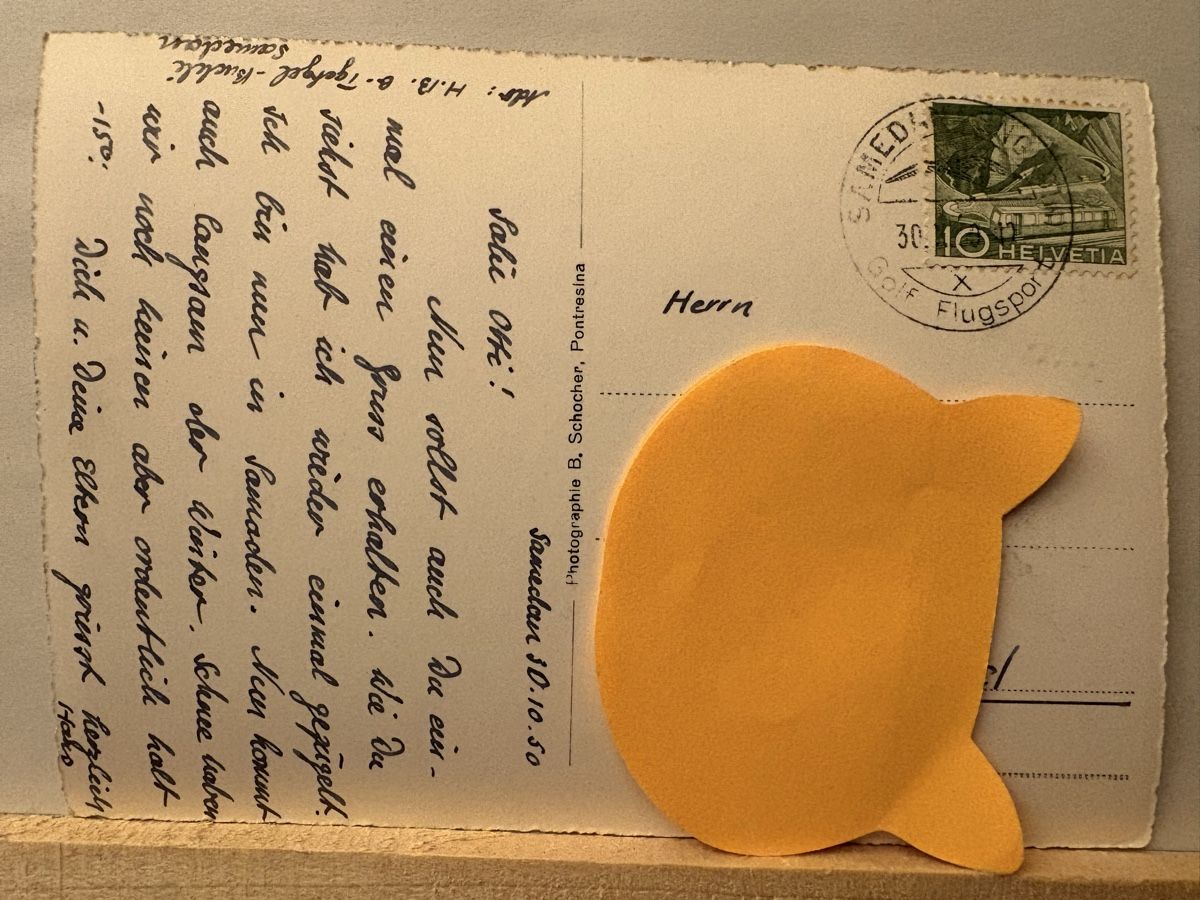 Samedan 30.10.50
Salü Otti!
Nun sollst auch Du ein-
mal einen Gruss erhalten. Wie Du
siehst hab ich wieder einmal gezügelt.
Ich bin nun in Samaden. Nun kommt
auch langsam der Winter. Schnee haben
wir noch keinen aber ordentlich kalt
-15°!
Dich u. Deine Eltern grüsst herzlich
Hans
Adr: H.B. b.
Samedan
Photographie B. Schocher, Pontresina
Herrn
SAMED
30. X
Golf Flugsport
10 HELVETIA